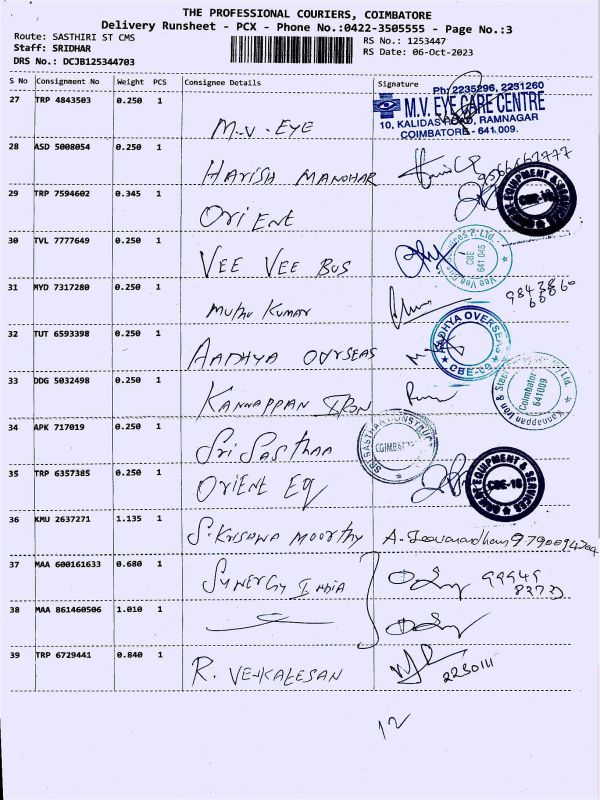 THE PROFESSIONAL COURIERS, COIMBATORE
Delivery Runsheet - PCX - Phone No.:0422-3505555 - Page No.:3
Route: SASTHIRI ST CMS
RS No.: 1253447
Staff: SRIDHAR
RS Date: 06-Oct-2023
DRS No.: DCJB125344703
S No Consignment No Weight PCS Consignee Details Signature
Ph: 2235296, 2231260
27 TRP 4843503 0.250 1 M.V. EYE
M.V. EYE CARE CENTRE
10, KALIDAS ROAD, RAMNAGAR
COIMBATORE - 641 009.
28 ASD 5008054 0.250 1 HARISH MANOHAR
29 TRP 7594602 0.345 1 ORIENT
ORIENT EQUIPMENT & SERVICES
CBE-18
30 TVL 7777649 0.250 1 VEE VEE BUS
Vee Vee Services P. Ltd.
CBE
641 045
31 MYD 7317280 0.250 1 Muthu Kumar
32 TUT 6593398 0.250 1 AADHYA OVERSEAS
AADHYA OVERSEAS
CBE-09
33 DDG 5032498 0.250 1 KANNAPPAN IRON
Kannappan Iron & Steel Ltd.
Coimbatore
641009
34 APK 717019 0.250 1 Sri Sasthaa
35 TRP 6357385 0.250 1 ORIENT EQ
ORIENT EQUIPMENT & SERVICES
CBE-18
36 KMU 2637271 1.135 1 S. Krishna Moorthy
37 MAA 600161633 0.680 1 Synergy India
99949
38 MAA 861460506 1.010 1
39 TRP 6729441 0.840 1 R. VENKATESAN
2230111
12